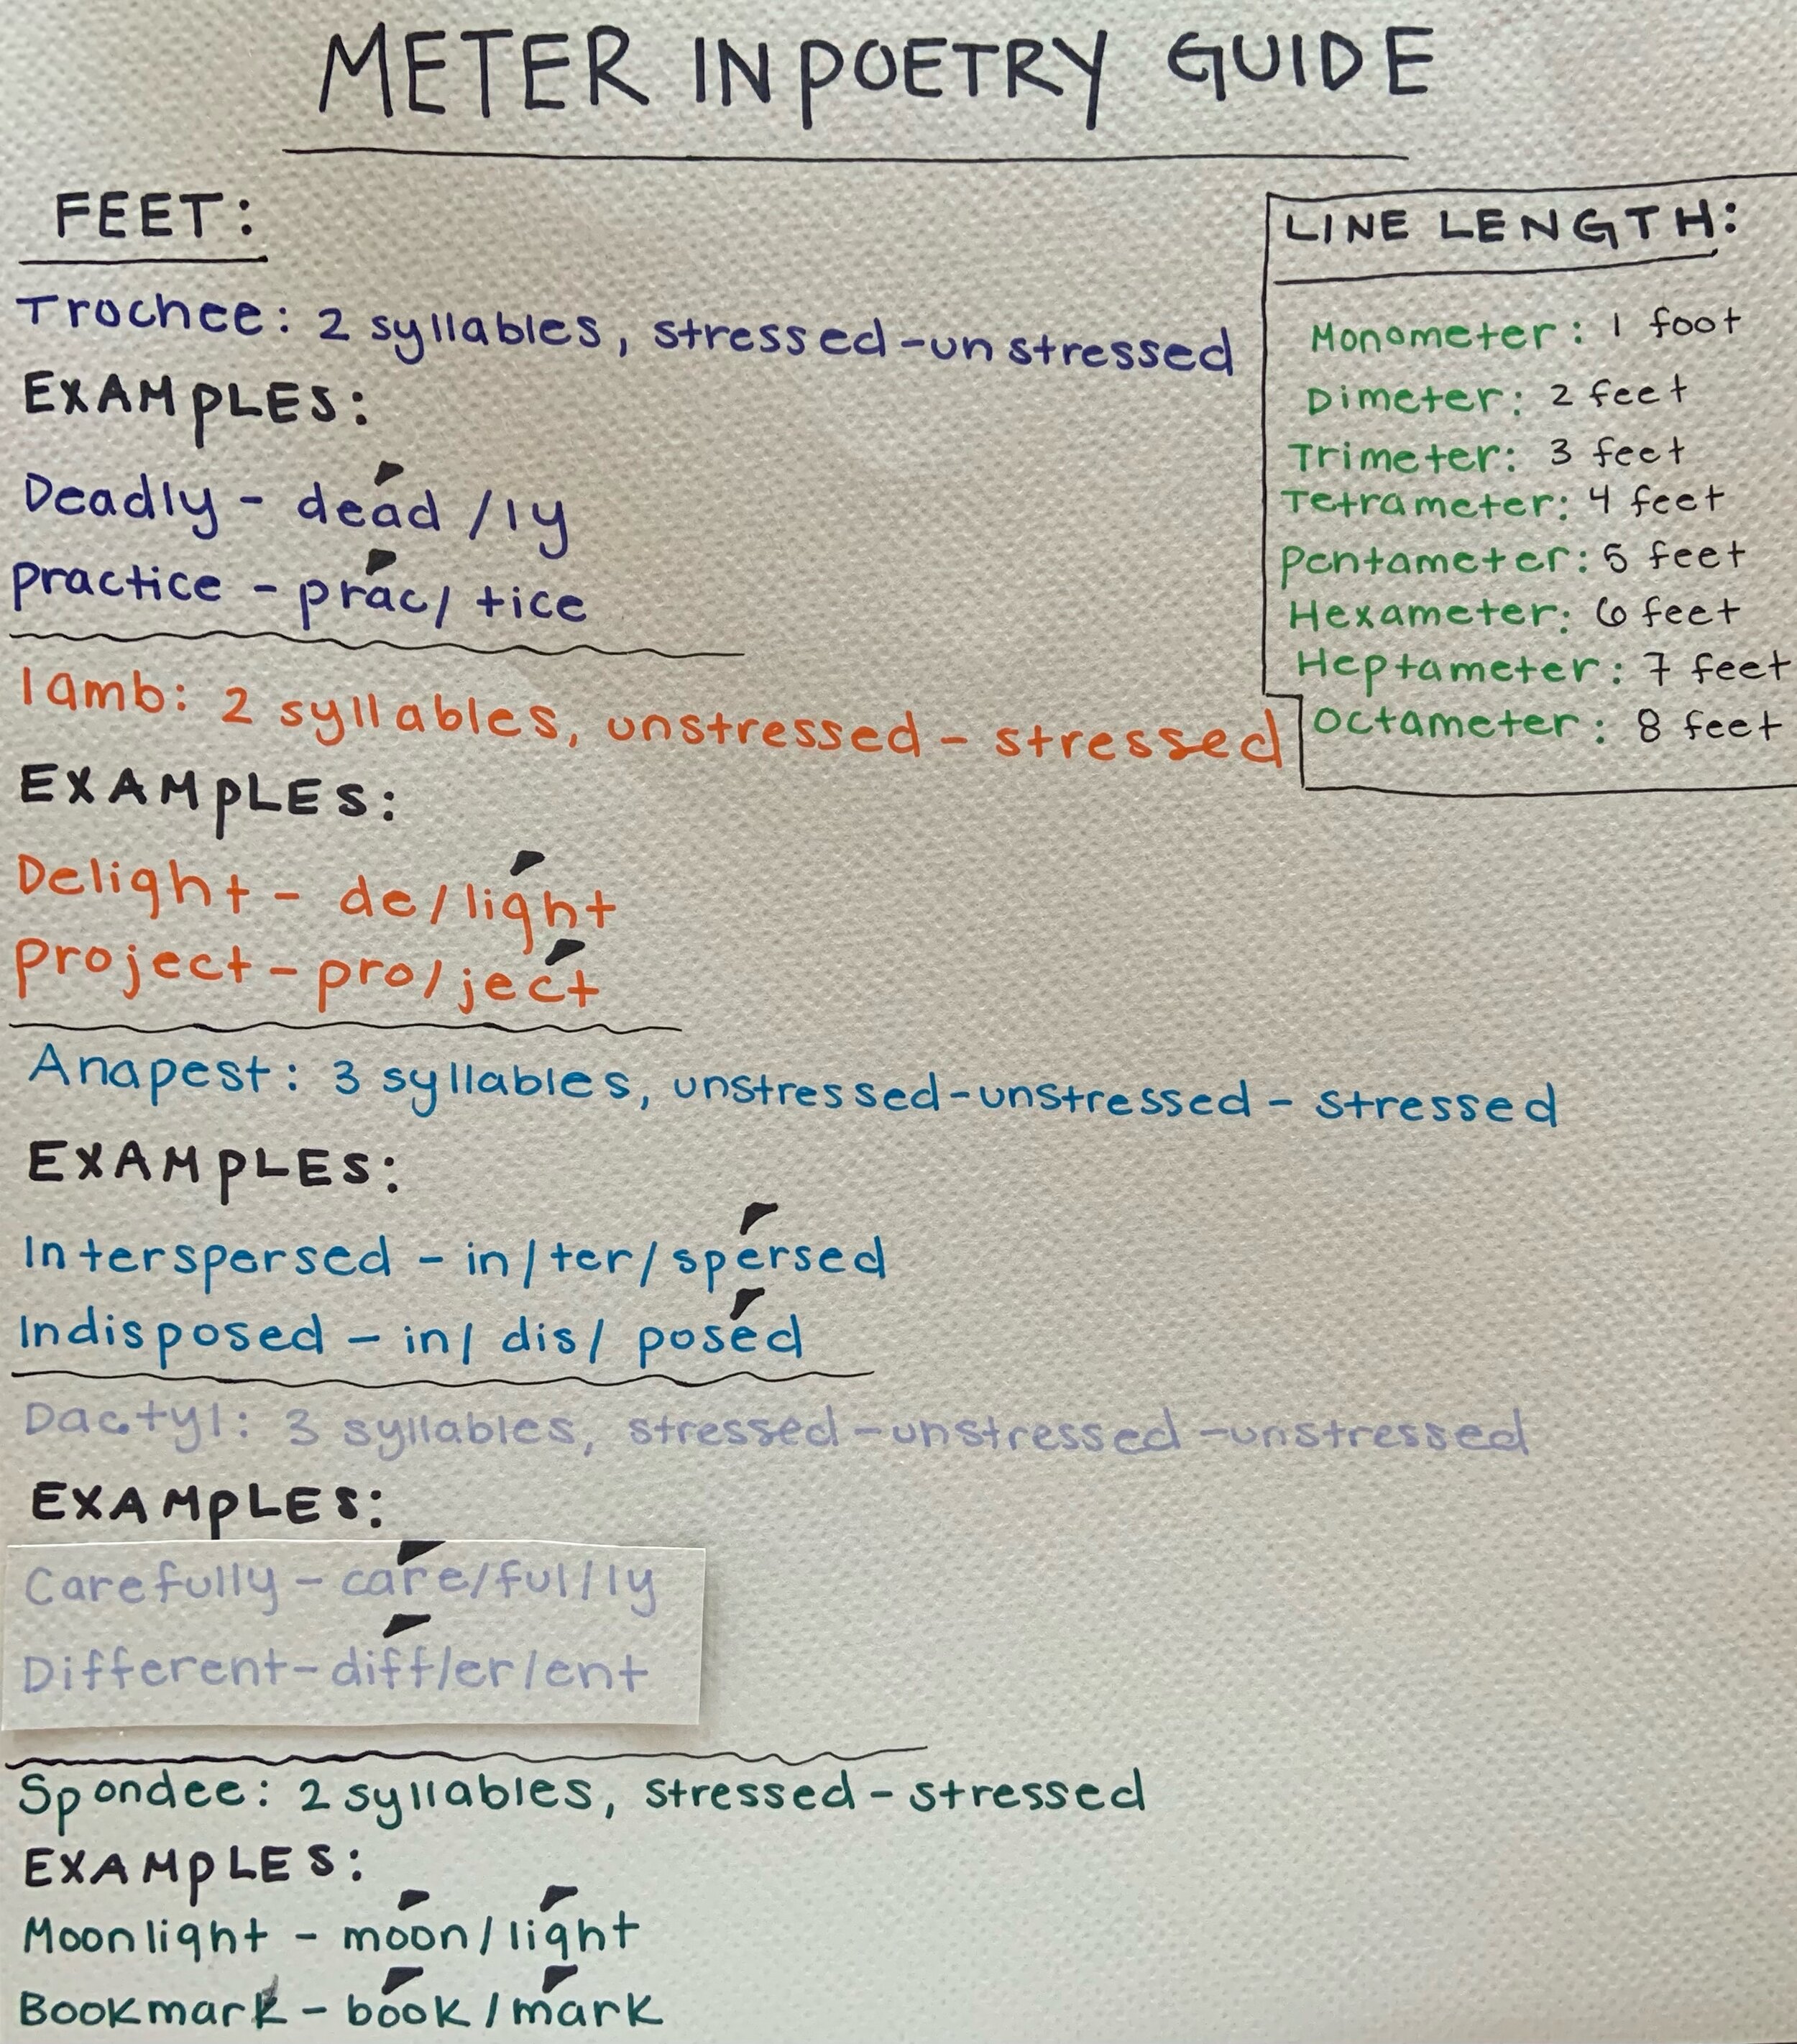 METER IN POETRY GUIDE
FEET:
Trochee: 2 syllables, stressed-unstressed
EXAMPLES:
Deadly - dead / ly
Practice - prac / tice
Iamb: 2 syllables, unstressed - stressed
EXAMPLES:
Delight - de/light
Project - pro/ject
Anapest: 3 syllables, unstressed-unstressed - stressed
EXAMPLES:
Interspersed - in/ter/spersed
Indisposed - in/ dis/ posed
Dactyl: 3 syllables, stressed-unstressed-unstressed
EXAMPLES:
Carefully - care/ful/ly
Different - diff/er/ent
Spondee: 2 syllables, stressed - stressed
EXAMPLES:
Moonlight - moon/light
Bookmark - book/mark
LINE LENGTH:
Monometer: 1 foot
Dimeter: 2 feet
Trimeter: 3 feet
Tetrameter: 4 feet
Pentameter: 5 feet
Hexameter: 6 feet
Heptameter: 7 feet
Octameter: 8 feet